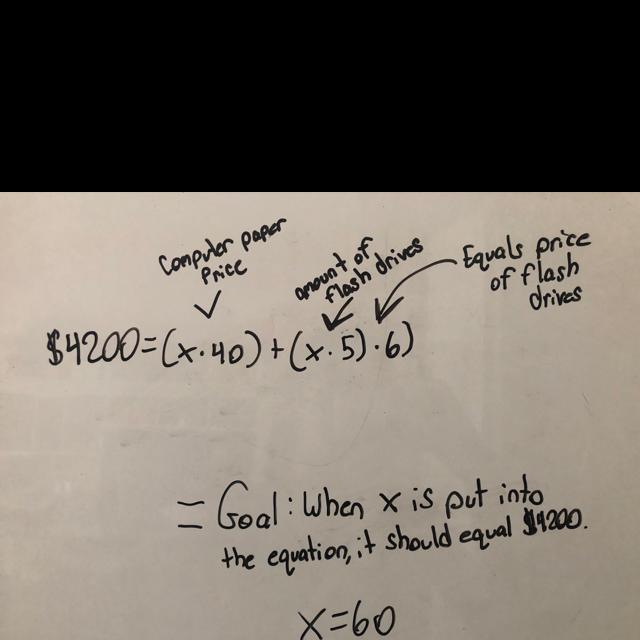 Computer paper
Price
amount of
flash drives
Equals price
of flash
drives
$4200=(x·40)+(x·5)·6)
= Goal: When x is put into
the equation, it should equal $4200.
x=60